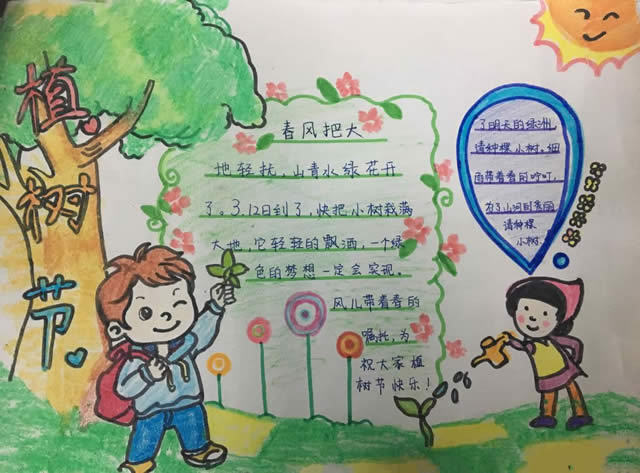 植树节
春风把大
地轻抚,山青水绿花开
了。3.12日到了,快把小树栽满
大地,它轻轻的飘洒,一个绿
色的梦想一定会实现。
风儿带着春的
嘱托,为
祝大家植
树节快乐!
了明天的绿洲
请种棵小树。细
雨带着春的吟叮,
为了山河的秀丽
请种棵
小树.